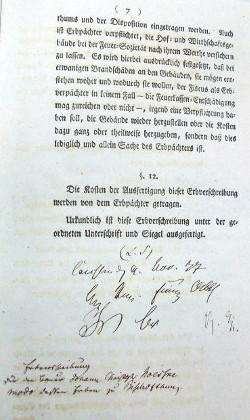 ( 7 )
thums und der Disposition eingetragen werden. Auch
ist Erbpächter verpflichtet, die Hof- und Wirthschaftsge-
bäude bei der Feuer-Societät nach ihrem Werthe versichern
zu lassen. Es wird hierbei ausdrücklich festgesetzt, daß bei
etwanigen Brandschäden an den Gebäuden, sie mögen ent-
stehen woher und wodurch sie wollen, der Fiscus als Erb-
verpächter in keinem Fall — die Feuerkassen-Entschädigung
mag zureichen oder nicht —, irgend eine Verpflichtung ha-
ben soll, die Gebäude wieder herzustellen oder die Kosten
dazu ganz oder theilweise herzugeben, sondern daß dies
lediglich und allein Sache des Erbpächters ist.
§. 12.
Die Kosten der Ausfertigung dieser Erbverschreibung
werden von dem Erbpächter getragen.
Urkundlich ist diese Erbverschreibung unter der ge-
ordneten Unterschrift und Siegel ausgefertigt.
(L. S)
Nov. 37
Erbverschreibung
für den Johann Christoph
modo dessen Erben zu